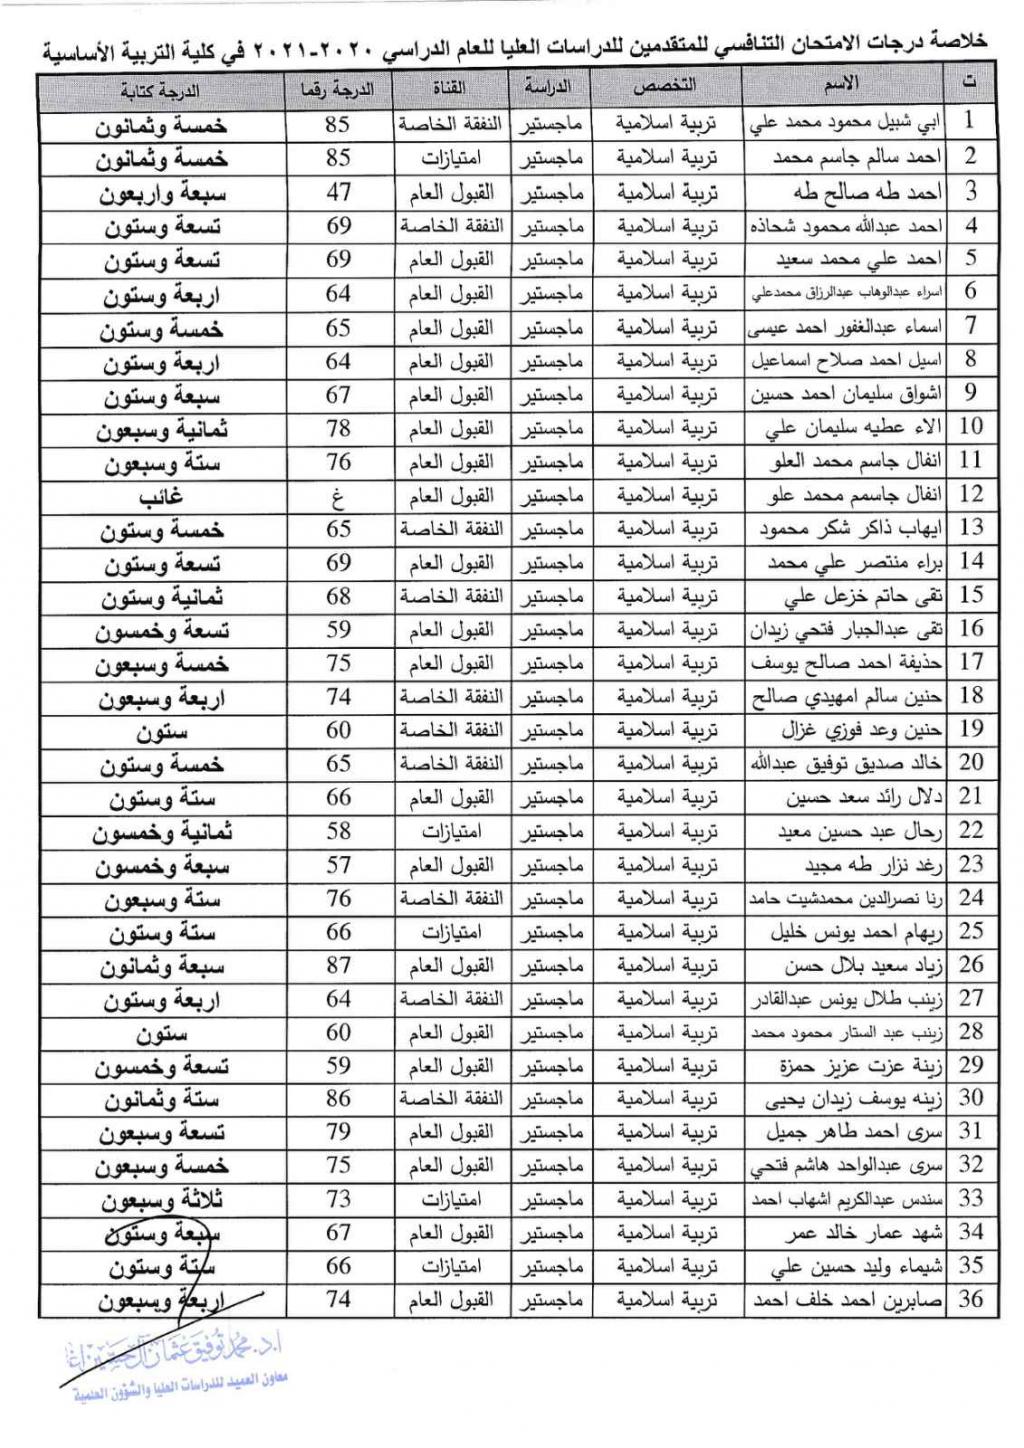 خلاصة درجات الامتحان التنافسي للمتقدمين للدراسات العليا للعام الدراسي ٢٠٢٠-٢٠٢١ في كلية التربية الأساسية
ت الاسم التخصص الدراسة القناة الدرجة رقما الدرجة كتابة
1 ابي شبيل محمود محمد علي تربية اسلامية ماجستير النفقة الخاصة 85 خمسة وثمانون
2 احمد سالم جاسم محمد تربية اسلامية ماجستير امتيازات 85 خمسة وثمانون
3 احمد طه صالح طه تربية اسلامية ماجستير القبول العام 47 سبعة واربعون
4 احمد عبدالله محمود شحاذه تربية اسلامية ماجستير النفقة الخاصة 69 تسعة وستون
5 احمد علي محمد سعيد تربية اسلامية ماجستير القبول العام 69 تسعة وستون
6 اسراء عبدالوهاب عبدالرزاق محمدعلي تربية اسلامية ماجستير القبول العام 64 اربعة وستون
7 اسماء عبدالغفور احمد عيسى تربية اسلامية ماجستير القبول العام 65 خمسة وستون
8 اسيل احمد صلاح اسماعيل تربية اسلامية ماجستير القبول العام 64 اربعة وستون
9 اشواق سليمان احمد حسين تربية اسلامية ماجستير القبول العام 67 سبعة وستون
10 الاء عطيه سليمان علي تربية اسلامية ماجستير القبول العام 78 ثمانية وسبعون
11 انفال جاسم محمد العلو تربية اسلامية ماجستير القبول العام 76 ستة وسبعون
12 انفال جاسمم محمد علو تربية اسلامية ماجستير القبول العام غ غائب
13 ايهاب ذاكر شكر محمود تربية اسلامية ماجستير النفقة الخاصة 65 خمسة وستون
14 براء منتصر علي محمد تربية اسلامية ماجستير القبول العام 69 تسعة وستون
15 تقى حاتم خزعل علي تربية اسلامية ماجستير النفقة الخاصة 68 ثمانية وستون
16 تقى عبدالجبار فتحي زيدان تربية اسلامية ماجستير النفقة الخاصة 59 تسعة وخمسون
17 حذيفة احمد صالح يوسف تربية اسلامية ماجستير القبول العام 75 خمسة وسبعون
18 حنين سالم امهيدي صالح تربية اسلامية ماجستير النفقة الخاصة 74 اربعة وسبعون
19 حنين وعد فوزي غزال تربية اسلامية ماجستير النفقة الخاصة 60 ستون
20 خالد صديق توفيق عبدالله تربية اسلامية ماجستير النفقة الخاصة 65 خمسة وستون
21 دلال رائد سعد حسين تربية اسلامية ماجستير القبول العام 66 ستة وستون
22 رحال عبد حسين معيد تربية اسلامية ماجستير امتيازات 58 ثمانية وخمسون
23 رغد نزار طه مجيد تربية اسلامية ماجستير القبول العام 57 سبعة وخمسون
24 رنا نصرالدين محمدشيت حامد تربية اسلامية ماجستير النفقة الخاصة 76 ستة وسبعون
25 ريهام احمد يونس خليل تربية اسلامية ماجستير امتيازات 66 ستة وستون
26 زياد سعيد بلال حسن تربية اسلامية ماجستير القبول العام 87 سبعة وثمانون
27 زينب طلال يونس عبدالقادر تربية اسلامية ماجستير النفقة الخاصة 64 اربعة وستون
28 زينب عبد الستار محمود محمد تربية اسلامية ماجستير القبول العام 60 ستون
29 زينة عزت عزيز حمزة تربية اسلامية ماجستير القبول العام 59 تسعة وخمسون
30 زينه يوسف زيدان يحيى تربية اسلامية ماجستير النفقة الخاصة 86 ستة وثمانون
31 سرى احمد طاهر جميل تربية اسلامية ماجستير القبول العام 79 تسعة وسبعون
32 سرى عبدالواحد هاشم فتحي تربية اسلامية ماجستير القبول العام 75 خمسة وسبعون
33 سندس عبدالكريم اشهاب احمد تربية اسلامية ماجستير امتيازات 73 ثلاثة وسبعون
34 شهد عمار خالد عمر تربية اسلامية ماجستير القبول العام 67 سبعة وستون
35 شيماء وليد حسين علي تربية اسلامية ماجستير امتيازات 66 ستة وستون
36 صابرين احمد خلف احمد تربية اسلامية ماجستير القبول العام 74 اربعة وسبعون
ا.د. محمد توفيق عثمان
معاون العميد للدراسات العليا والشؤون العلمية